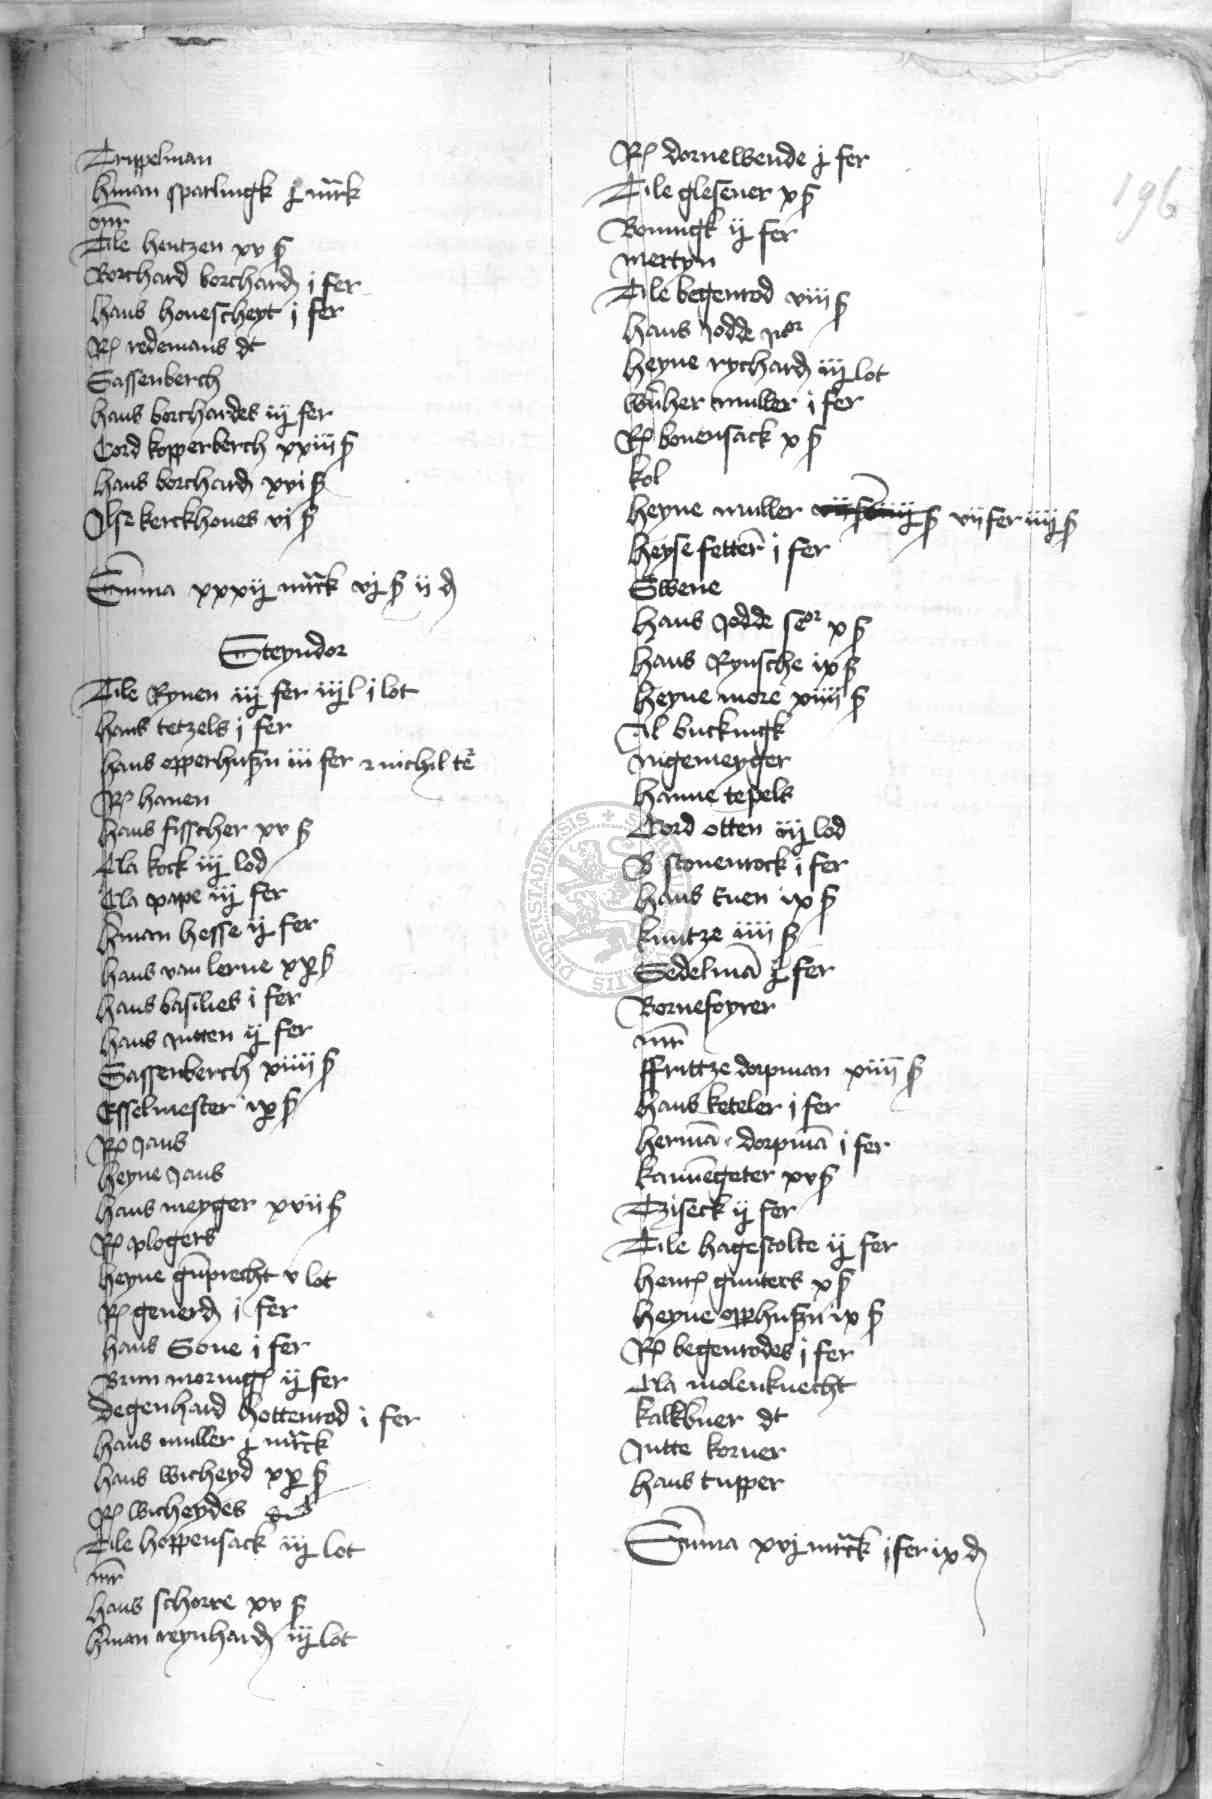 Trippelman
Hman sparlingk j mrck
mr
Tile Hentzen xv ß
Borchard borchard j fer
Hans honescheyt j fer
Rel redemans dt
Sassenberch
Hans borchardes iij fer
Cord kopperberch xxiii ß
Hans borchard xvi ß
Ilse kerckhoues vi ß
Summa xxxij mrck vj ß ii d
Steyndor
Tile Rynen iij fer iij l i lot
Hans tetzels j fer
Hans opperhuszn iii fer nichil
Rel hanen
Hans fisscher xv ß
Cla kock iij lod
Cla pape iij fer
Hman hesse ij fer
Hans van lerne ß
Hans basilies i fer
Hans Jutten ij fer
Sassenberch xiiii ß
Esselmester ß
Rel Jans
Heyne Jans
Hans meyger xvii ß
Rel plogers
Heyne gnprecht v lot
Rel geuerd i fer
Hans Sone i fer
Brun moring ij fer
Degenhard hottenrod i fer
Hans muller j mrck
Hans wicheyd ß
Rel wicheydes
Tile hoppensack iij lot
mr
Hans schorre xv ß
Hman reynhard iij lot
196
Rel dornewende j fer
Tile glesener x ß
Boningk ij fer
mertyn
Tile begenrod viii ß
Hans Jodde Jor
Heyne rychard iij lot
wnher muller i fer
Rel bouensack x ß
kol
Heyne muller ß vii fer iiij ß
Heyse fetter i fer
Swene
Hans Jodde seor x ß
Hans Rynsche ix ß
Heyne more xiiii ß
Al buckingk
nigemeyger
Hanne tepels
Cord otten iij lod
B stouenrock i fer
Hans tuen ix ß
kuntze iiii ß
Sedelman j fer
Bornefoyrer
mr
ffrittze dorpman xiiii ß
Hans keteler j fer
Herman dorpman i fer
kannegeter xv ß
Tziseck ij fer
Tile hagestolte ij fer
Henr gunters x ß
Heyne opphuszn ix ß
Rel begenrodes j fer
Cla molenknecht
kalkbner dt
Jutte korner
Hans tupper
Summa xvj mrck j fer ix d